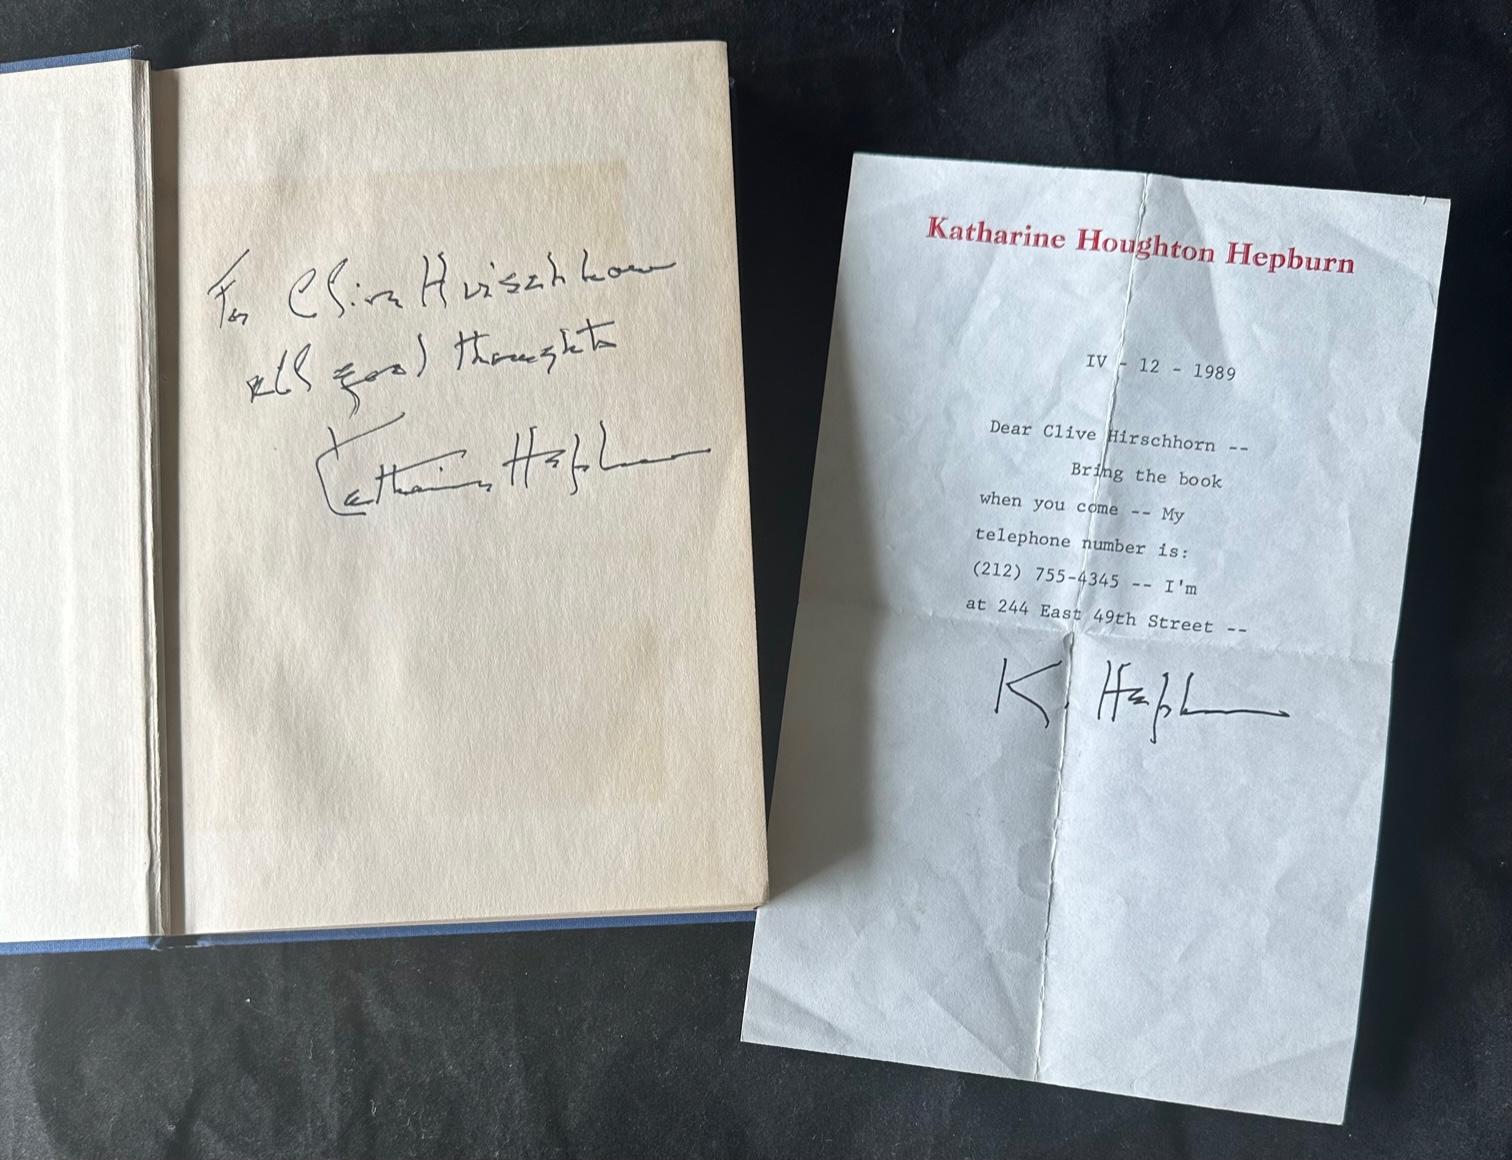 To Clive Hirschhorn
all good thoughts
Katharine Hepburn
Katharine Houghton Hepburn
IV - 12 - 1989
Dear Clive Hirschhorn --
Bring the book
when you come -- My
telephone number is:
(212) 755-4345 -- I'm
at 244 East 49th Street --
K. Hepburn